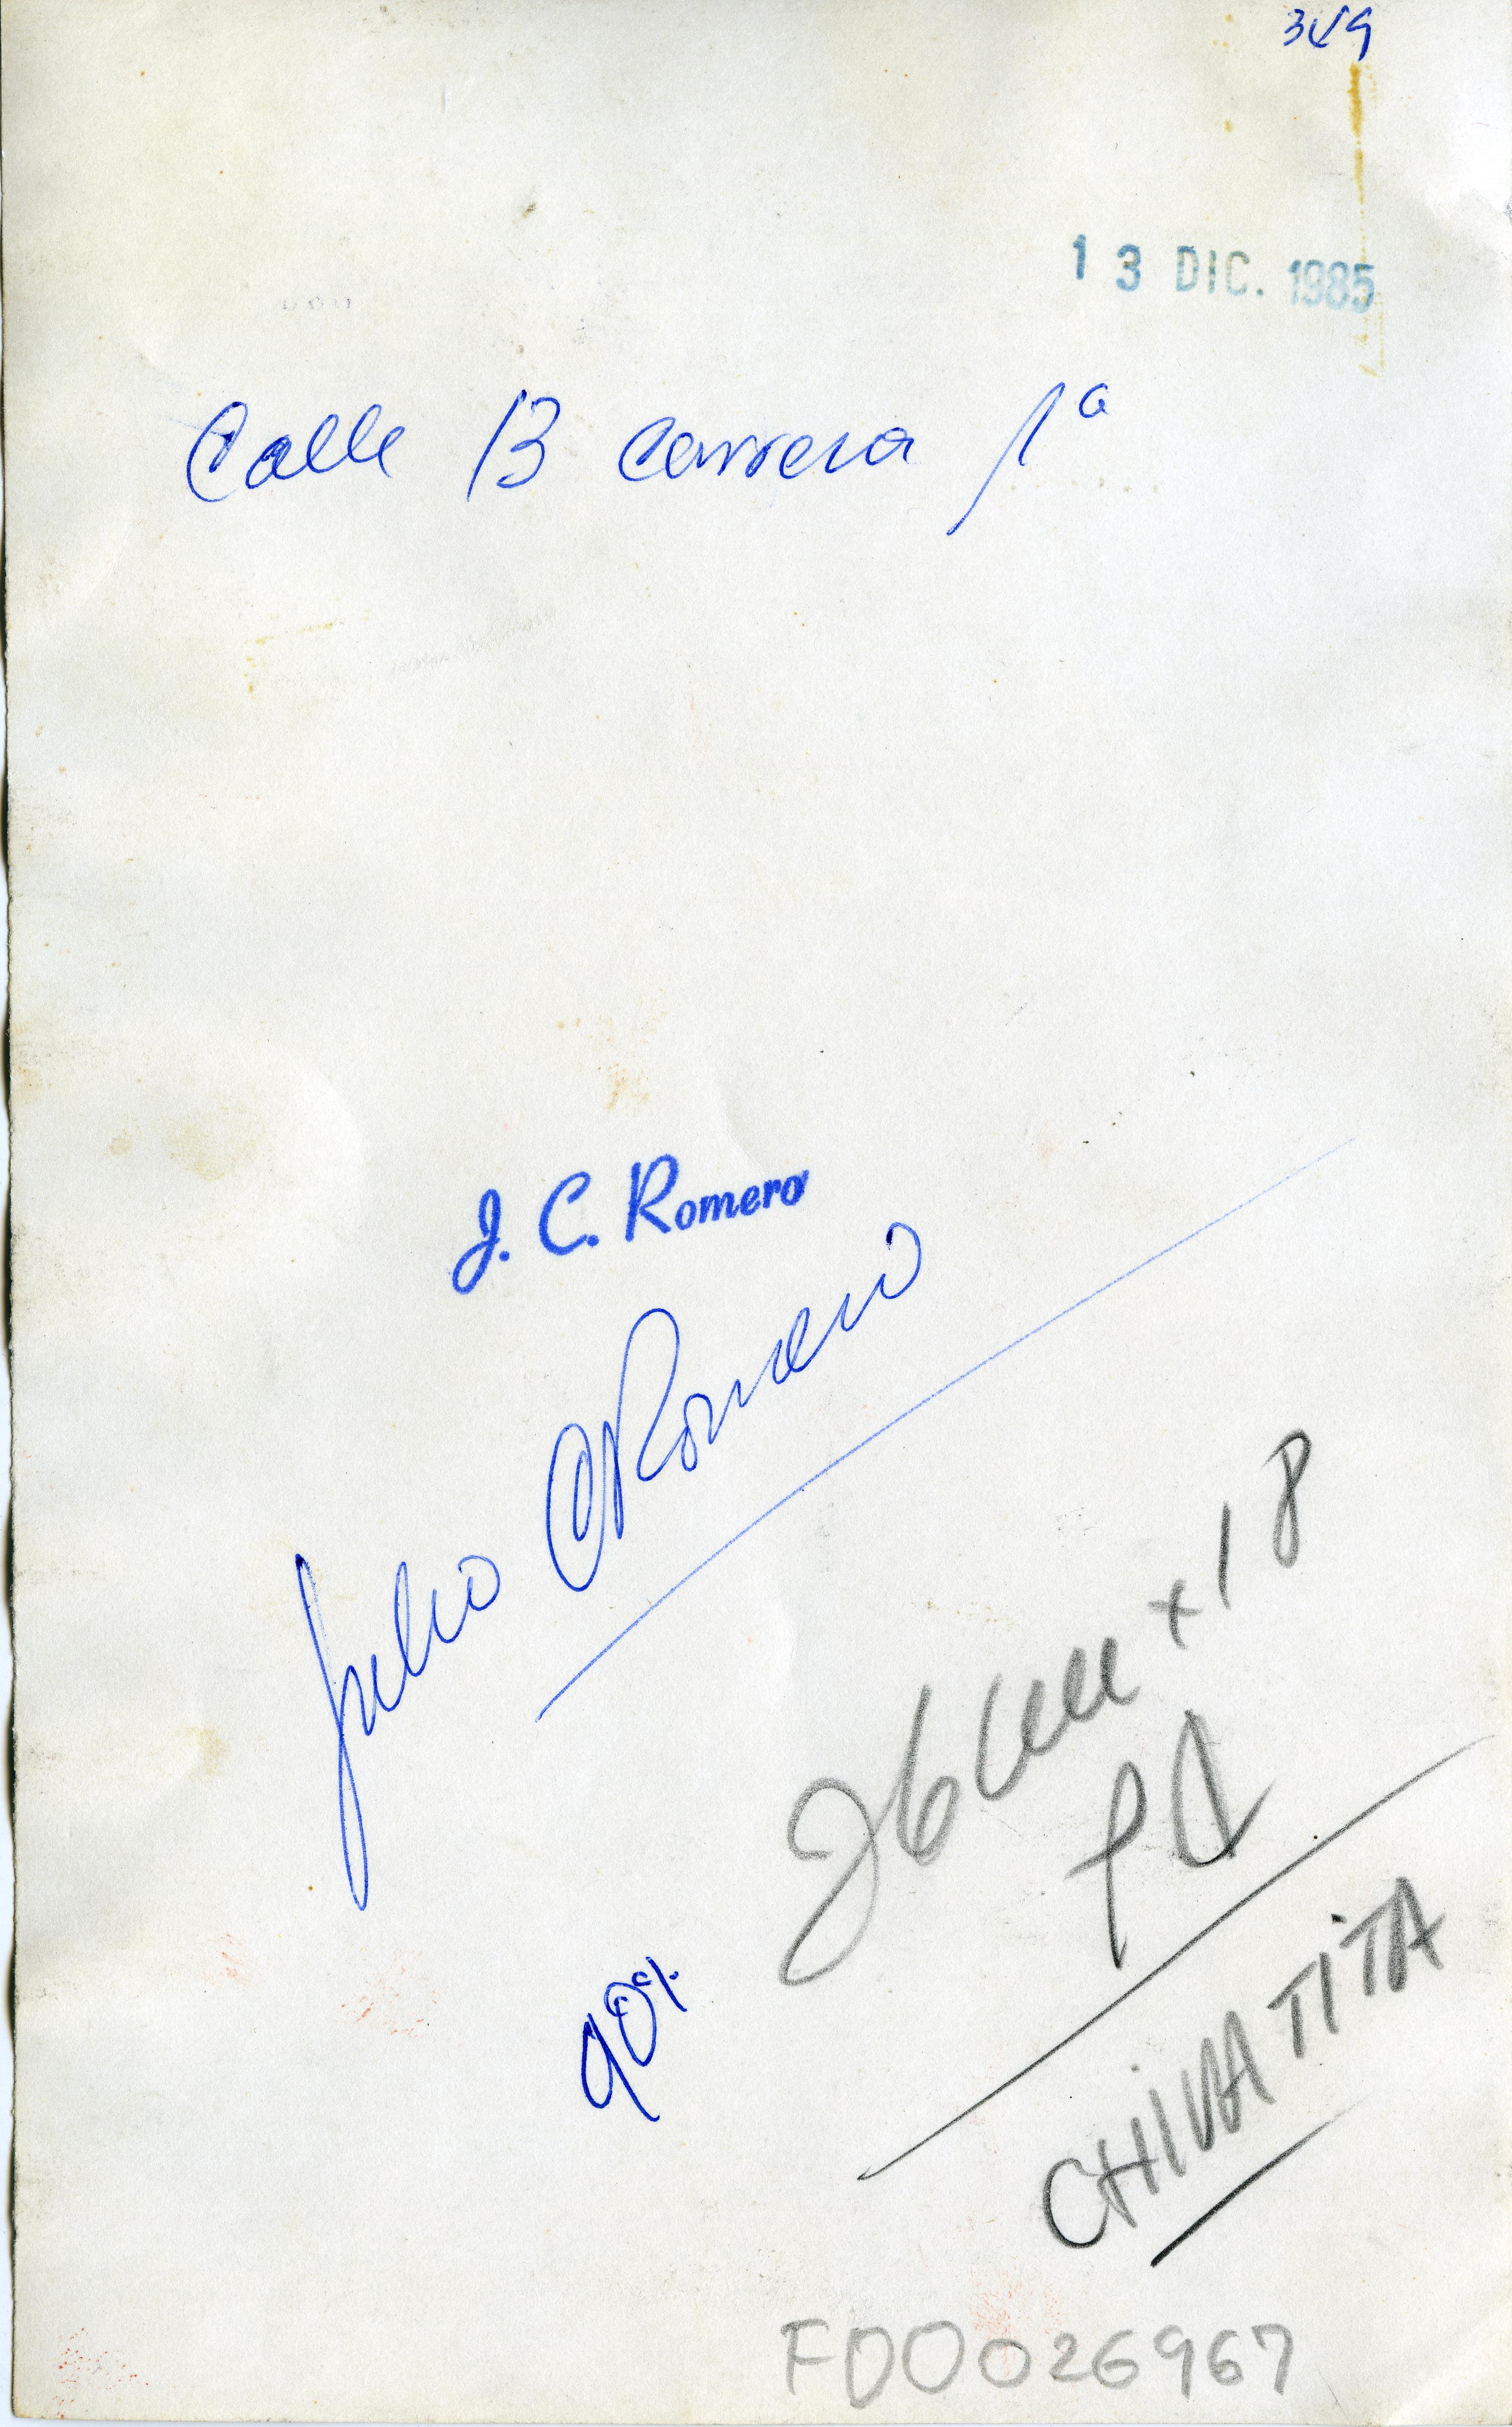 349
13 DIC. 1985
Calle 13 carrera 1ª
J. C. Romero
Julio C Romero
26 cm x 18
90%
CHIVA TITA
F00026967